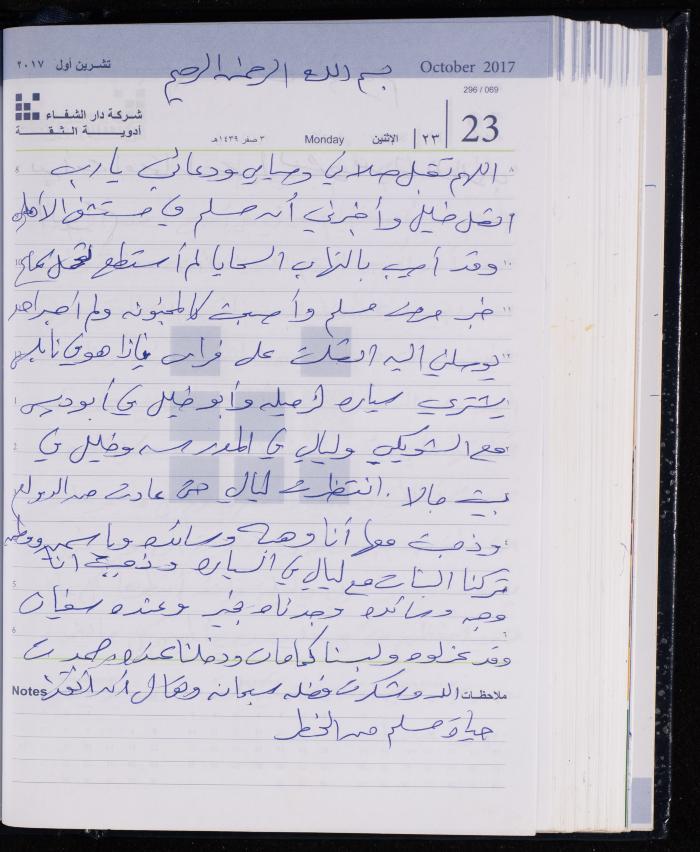 تشرين أول ٢٠١٧
بسم الله الرحمن الرحيم
October 2017
296 / 069
شركة دار الشفاء
أدويـة الثـقـة
٣ صفر ١٤٣٩هـ
Monday
الإثنين
٢٣
23
اللهم تقبل صلاتي وصيامي ودعائي يارب
اتصل خليل وأخبرني أن مسلم في مستشفى الأهلي
وقد أصيب بالتهاب السحايا لم أستطع تحمل سماع
خبر مرض مسلم وأصبحت كالمجنونه ولم أجد أحد
يوصلني اليه اتصلت على فراس فإذا هو في نابلس
يشتري سياره لزميله وأبو خليل في أبو ديس
مع الشويكي وليالي في المدرسه وخليل في
بيت جالا. انتظرت ليالي حتى عادت من الدوام
وذهبت معها أنا وهبه وسائده وياسمين
تركنا البنات مع ليالي في السياره وذهبت أنا
وهبه وسائده وجدناه بخير وعنده سفيان
وقد عزلوه ولبسنا كمامات ودخلنا عنده حمدت
ملاحظات
Notes
الله وشكرت فضله سبحانه وتعالى أنه أنقذ
حياة مسلم من الخطر